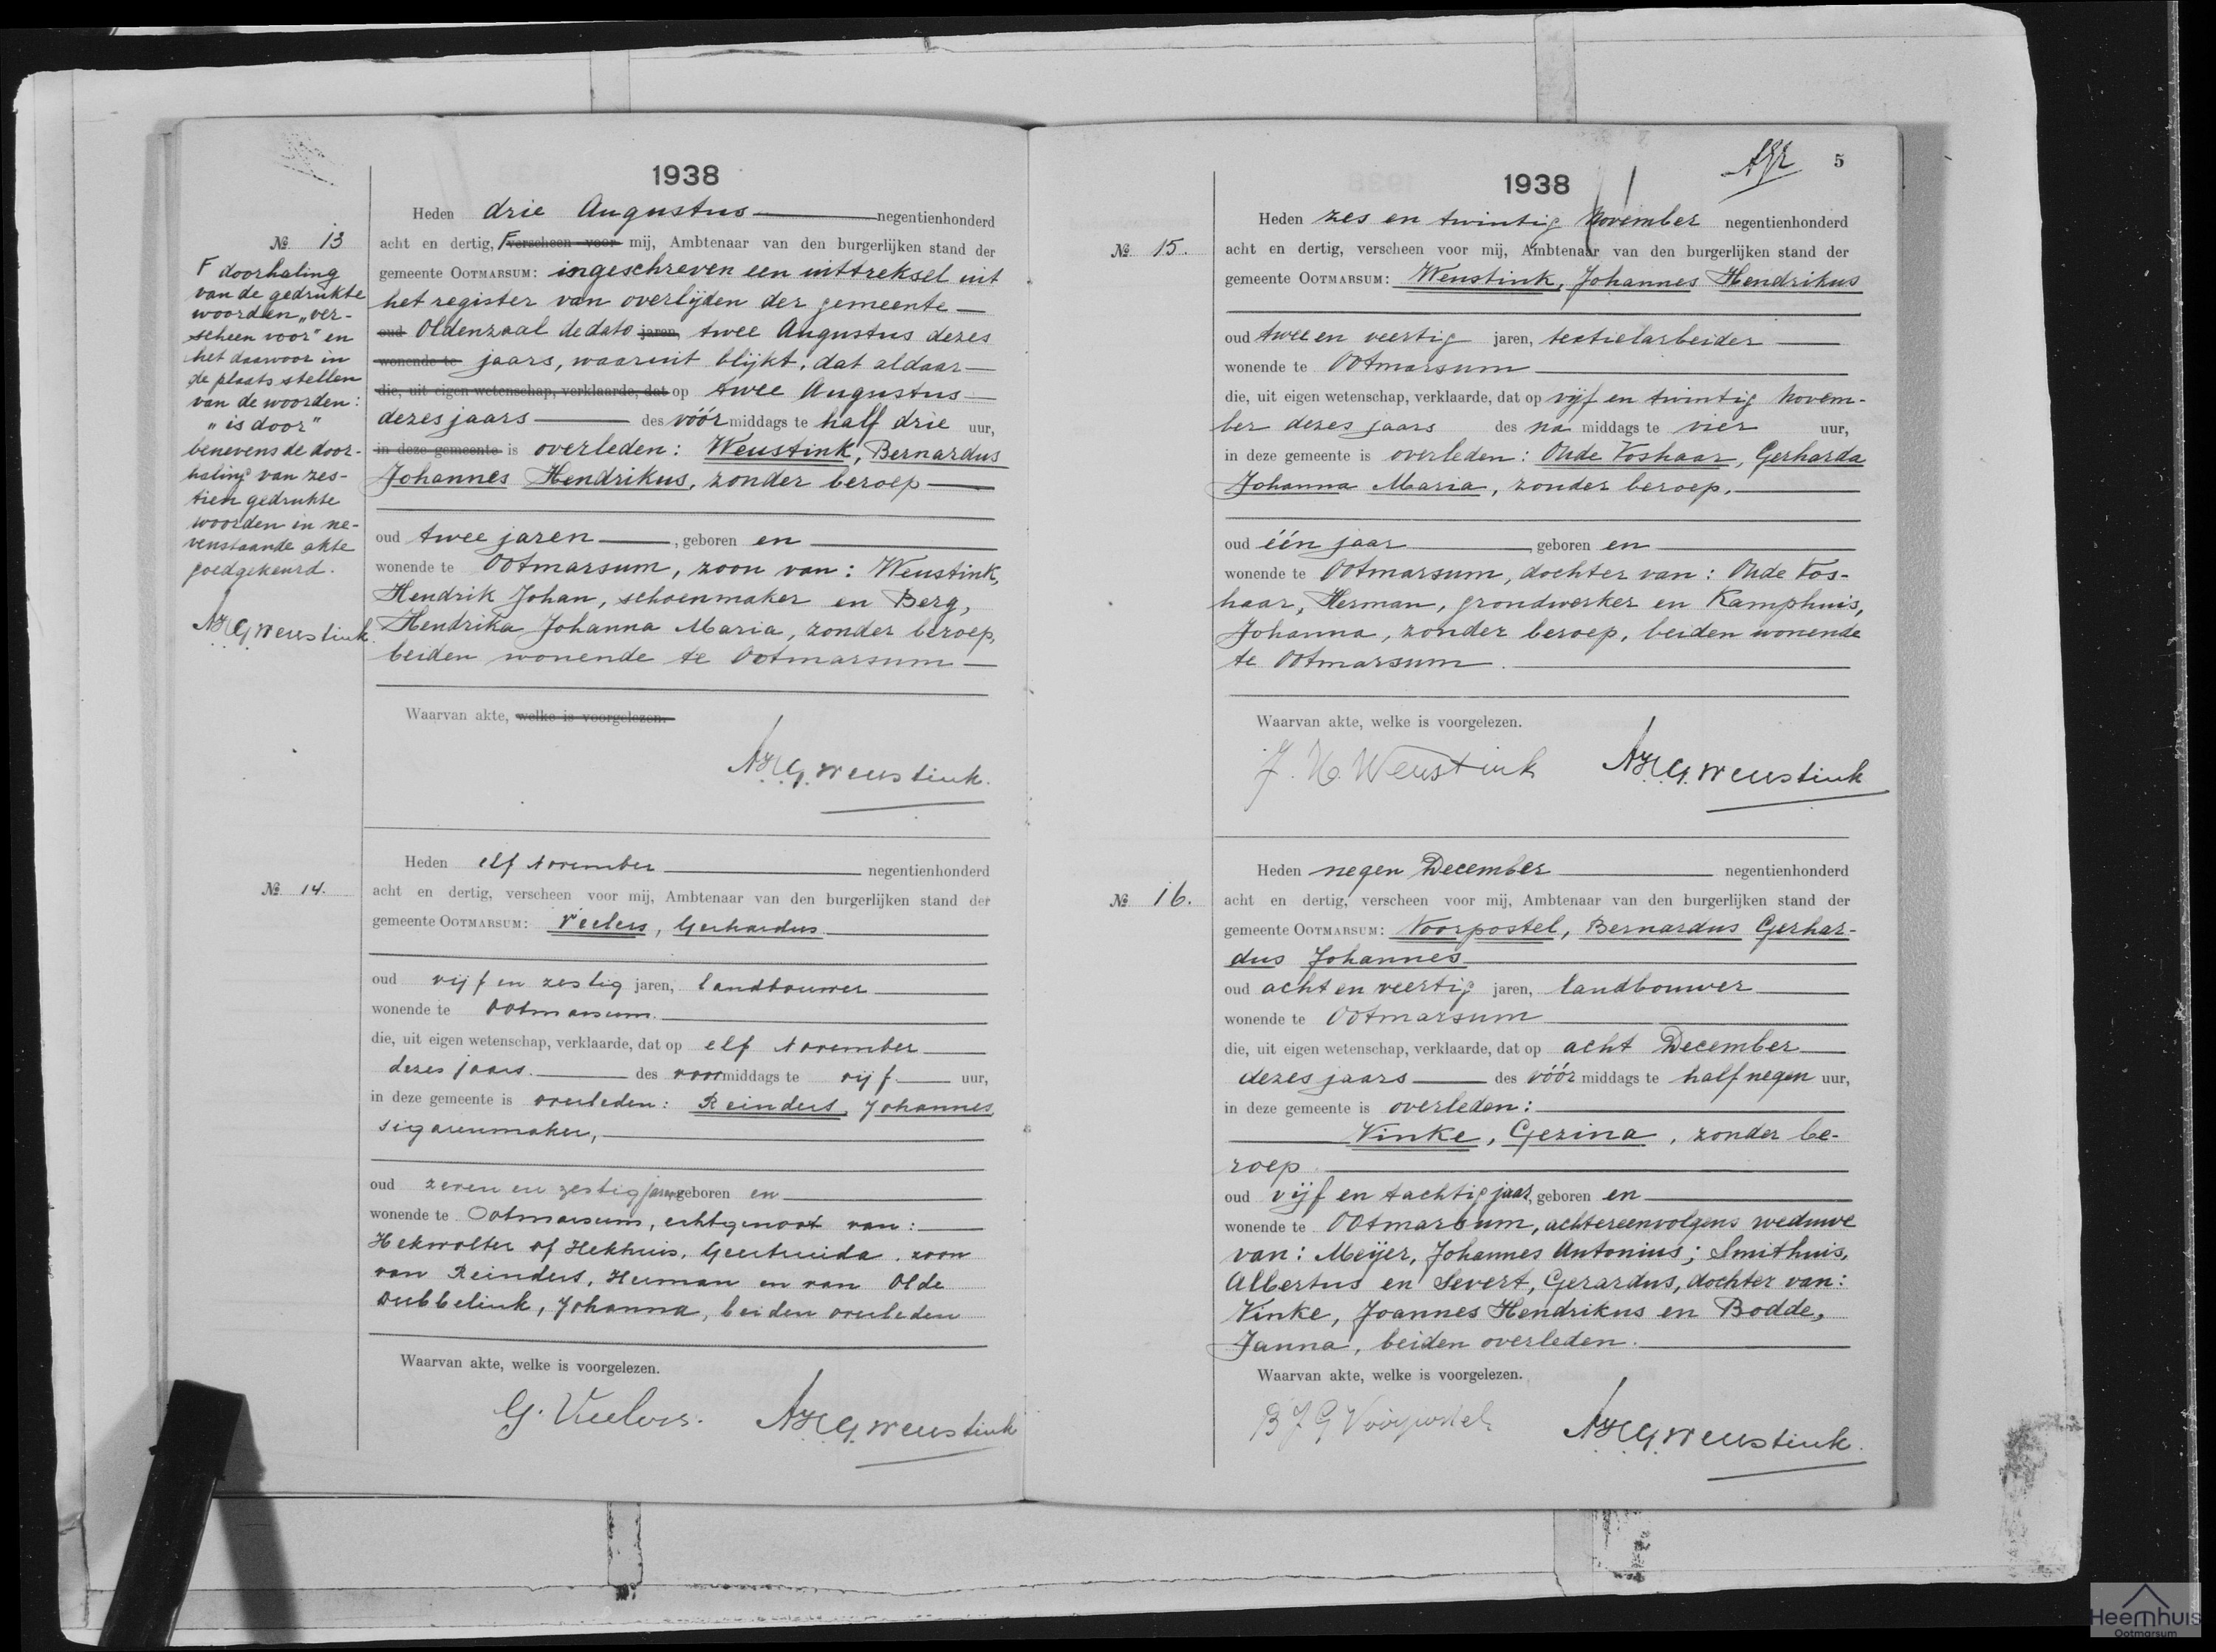 1938
Heden drie Augustus negentienhonderd
№ 13
acht en dertig, F verscheen voor mij, Ambtenaar van den burgerlijken stand der
gemeente OOTMARSUM: ingeschreven een uittreksel uit
het register van overlijden der gemeente
oud Oldenzaal de dato jaren, twee Augustus dezes
wonende te jaars, waaruit blijkt, dat aldaar
die, uit eigen wetenschap, verklaarde, dat op twee Augustus
dezes jaars des vóór middags te half drie uur,
in deze gemeente is overleden: Weustink, Bernardus
Johannes Hendrikus, zonder beroep
oud twee jaren, geboren en
wonende te Ootmarsum, zoon van: Weustink,
Hendrik Johan, schoenmaker en Berg,
Hendrika Johanna Maria, zonder beroep,
beiden wonende te Ootmarsum
Waarvan akte, welke is voorgelezen.
A.H.G. Weustink.
F doorhaling
van de gedrukte
woorden „ver-
scheen voor" en
het daarvoor in
de plaats stellen
van de woorden:
„is door"
benevens de door-
haling van zes-
tien gedrukte
woorden in ne-
venstaande akte
goedgekeurd.
A.H.G. Weustink.
Heden elf November negentienhonderd
№ 14.
acht en dertig, verscheen voor mij, Ambtenaar van den burgerlijken stand der
gemeente OOTMARSUM: Veelers, Gerhardus
oud vijf en zestig jaren, landbouwer
wonende te Ootmarsum.
die, uit eigen wetenschap, verklaarde, dat op elf November
dezes jaars. des voormiddags te vijf uur,
in deze gemeente is overleden: Reinders, Johannes
sigarenmaker,
oud zeven en zestig jaren geboren en
wonende te Ootmarsum, echtgenoot van:
Hekwolter of Hekhuis, Geertruida, zoon
van Reinders, Herman en van Olde
Dubbelink, Johanna, beiden overleden
Waarvan akte, welke is voorgelezen.
G. Veelers. A.H.G. Weustink
5
1938
Heden zes en twintig November negentienhonderd
№ 15.
acht en dertig, verscheen voor mij, Ambtenaar van den burgerlijken stand der
gemeente OOTMARSUM: Weustink, Johannes Hendrikus
oud twee en veertig jaren, textielarbeider
wonende te Ootmarsum
die, uit eigen wetenschap, verklaarde, dat op vijf en twintig Novem-
ber dezes jaars des na middags te vier uur,
in deze gemeente is overleden: Oude Voshaar, Gerharda
Johanna Maria, zonder beroep.
oud één jaar, geboren en
wonende te Ootmarsum, dochter van: Oude Vos-
haar, Herman, grondwerker en Kamphuis,
Johanna, zonder beroep, beiden wonende
te Ootmarsum.
Waarvan akte, welke is voorgelezen.
J. H. Weustink A.H.G. Weustink
Heden negen December negentienhonderd
№ 16.
acht en dertig, verscheen voor mij, Ambtenaar van den burgerlijken stand der
gemeente OOTMARSUM: Voorpostel, Bernardus Gerhar-
dus Johannes
oud acht en veertig jaren, landbouwer
wonende te Ootmarsum
die, uit eigen wetenschap, verklaarde, dat op acht December
dezes jaars des vóór middags te half negen uur,
in deze gemeente is overleden:
Vinke, Gezina, zonder be-
roep
oud vijf en tachtig jaar, geboren en
wonende te Ootmarsum, achtereenvolgens weduwe
van: Meijer, Johannes Antonius; Smithuis,
Albertus en Severt, Gerardus, dochter van:
Vinke, Joannes Hendrikus en Bodde,
Janna, beiden overleden.
Waarvan akte, welke is voorgelezen.
B J G Voorpostel A.H.G. Weustink.
Heemhuis
Ootmarsum